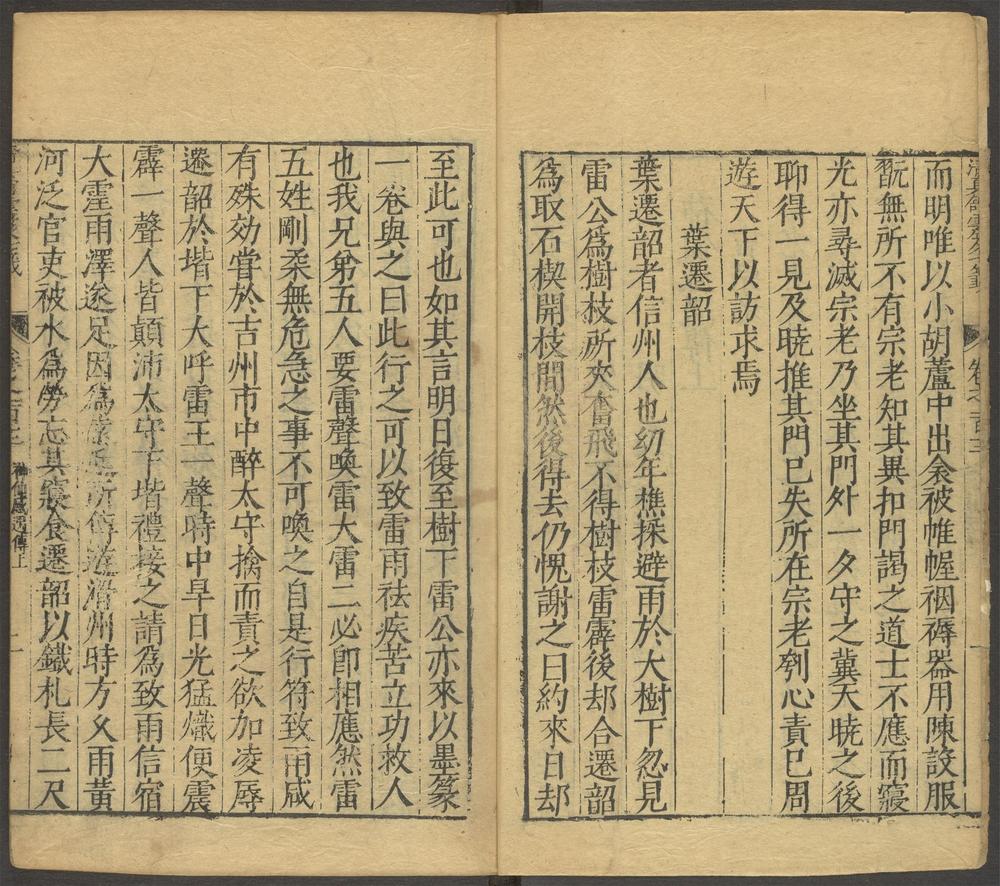 而明唯以小胡蘆中出衾被帷幄裀褥器用陳設服
翫無所不有宗老知其異扣門謁之道士不應而寢
光亦尋滅宗老乃坐其門外一夕守之冀天曉之後
聊得一見及曉推其門已失所在宗老刳心責已周
遊天下以訪求焉
葉遷韶
葉遷韶者信州人也幼年樵採避雨於大樹下忽見
雷公爲樹枝所夾奮飛不得樹枝雷霹後却合遷韶
爲取石楔開枝間然後得去仍愧謝之曰約來日却
至此可也如其言明日復至樹下雷公亦來以墨篆
一卷與之曰此行之可以致雷雨祛疾苦立功救人
也我兄弟五人要雷聲喚雷大雷二必即相應然雷
五姓剛柔無危急之事不可喚之自是行符致雨咸
有殊効嘗於吉州市中醉太守擒而責之欲加凌辱
遷韶於堦下大呼雷王一聲時中旱日光猛熾便震
霹一聲人皆顛沛太守下堦禮接之請爲致雨信宿
大霔雨澤遂足因爲遠近所傳遊滑州時方久雨黃
河泛官吏被水爲勞忘其寢食遷韶以鐵札長二尺
神仙感遇傳上